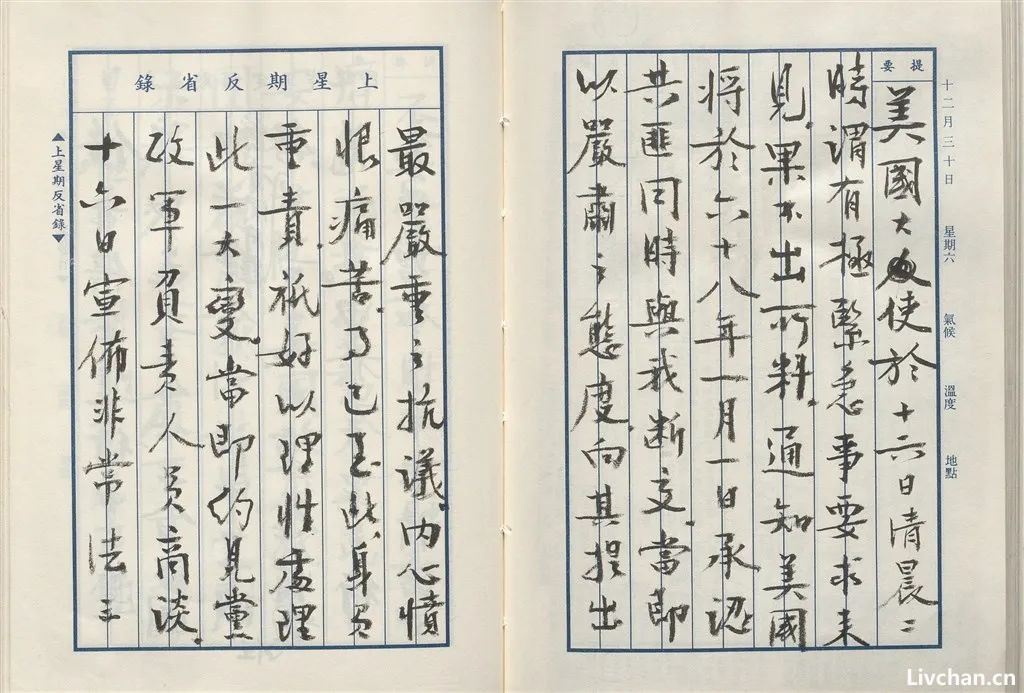 十二月三十日 星期六 氣候 溫度 地點
提要
美國大使於十六日清晨二
時謂有極緊急事要求来
見,果不出所料,通知美國
將於六十八年一月一日承認
共匪同時與我断交,當即
以嚴肅之態度,向其提出
上星期反省錄
最嚴重之抗議,内心憤
恨痛苦,事已至此,身負
重責,祇好以理性處理
此一大變,當即約見黨
政軍負責人員商談,
十六日宣佈非常法三
▲上星期反省錄▼
Livchan.cn